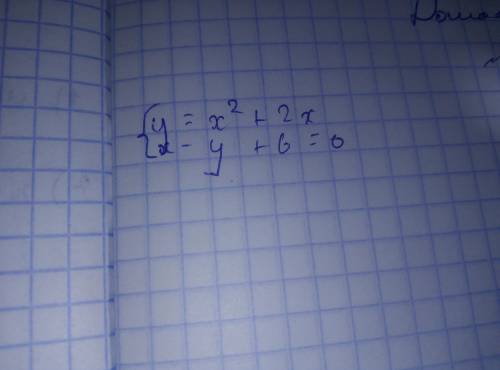 {y = x² + 2x
x - y + 6 = 0